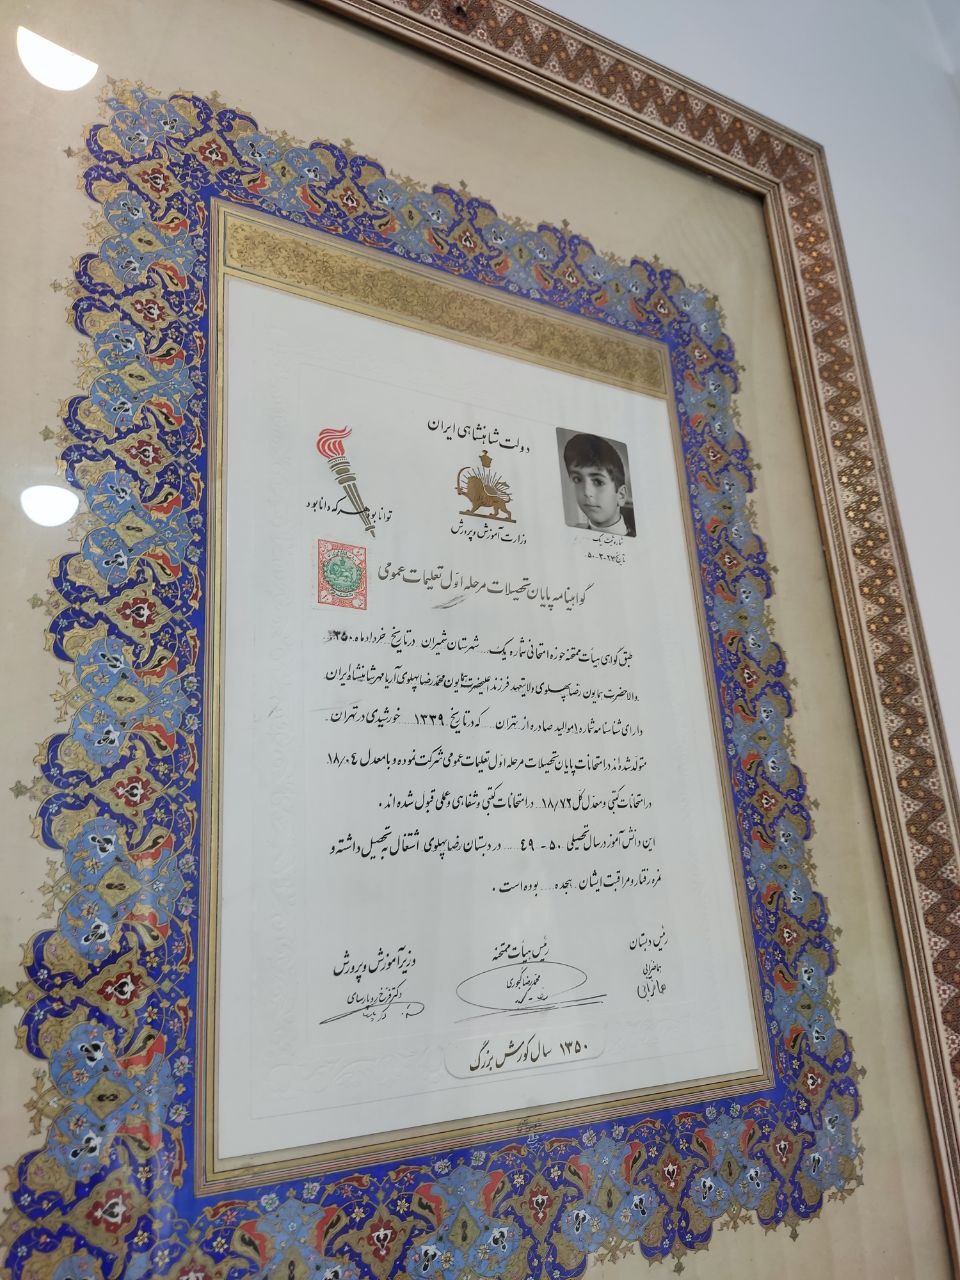 دولت شاهنشاهی ایران
توانا بود هر که دانا بود
وزارت آموزش و پرورش
شماره ثبت یک
تاریخ ۵۰،۳،۲۷
گواهینامه پایان تحصیلات مرحله اول تعلیمات عمومی
طبق گواهی هیأت ممتحنه حوزه امتحانی شماره یک شهرستان شمیران در تاریخ خرداد ماه ۱۳۵۰
والاحضرت همایون رضا پهلوی ولایتعهد فرزند اعلیحضرت همایون محمدرضا پهلوی آریامهر شاهنشاه ایران
دارای شناسنامه شماره ۱ موالید صادره از تهران که در تاریخ ۱۳۳۹ خورشیدی در تهران
متولد شده‌اند در امتحانات پایان تحصیلات مرحله اول تعلیمات عمومی شرکت نموده و با معدل ۱۸/۰۴
در امتحانات کتبی و معدل کل ۱۸/۷۲ در امتحانات کتبی و شفاهی و عملی قبول شده‌اند.
این دانش آموز در سال تحصیلی ۵۰ - ۴۹ در دبستان رضا پهلوی اشتغال به تحصیل داشته و
نمره رفتار و مراقبت ایشان هجده بوده است.
رئیس دبستان
رئیس هیأت ممتحنه
وزیر آموزش و پرورش
دکتر فرخ رو پارسای
۱۳۵۰ سال کورش بزرگ